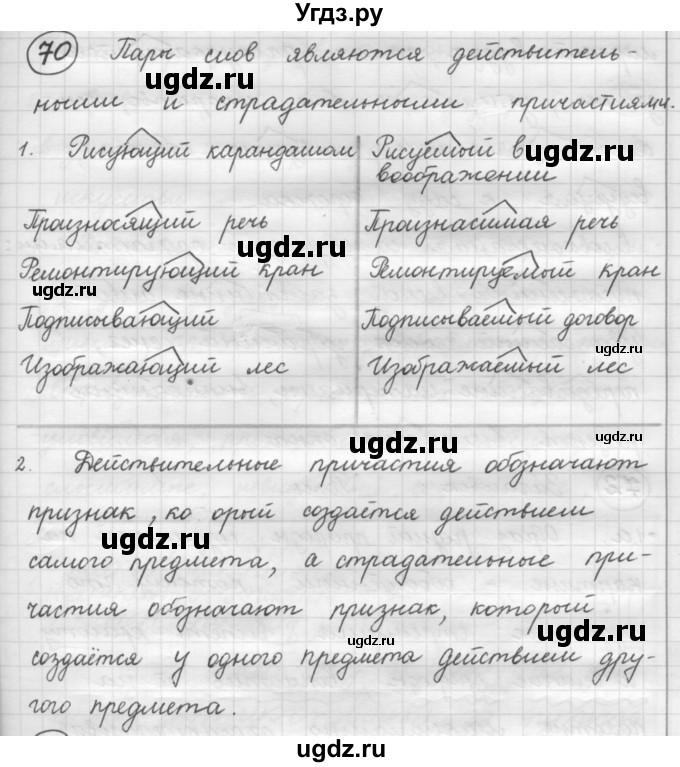 Угдз.ру
70 Пары слов являются действитель-
ными и страдательными причастиями.
1. Рисующий карандашом Рисуемый в
воображении
Произносящий речь Произнасимая речь
Ремонтирующий кран Ремонтируемый кран
Подписывающий Подписываемый договор
Изображающий лес Изображаемый лес
2. Действительные причастия обозначают
признак, ко орый создаётся действием
самого предмета, а страдательные при-
частия обозначают признак, который
создаётся у одного предмета действием дру-
гого предмета.
ugdz.ru
ugdz.ru
ugdz.ru
ugdz.ru
ugdz.ru
ugdz.ru
ugdz.ru
ugdz.ru
ugdz.ru
ugdz.ru
ugdz.ru
ugdz.ru